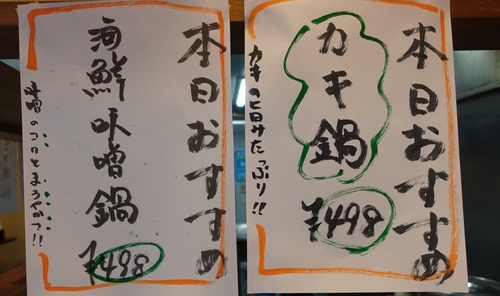 本日おすすめ
カキ鍋
¥498
カキの旨みたっぷり!!
本日おすすめ
海鮮味噌鍋
¥498
味噌のコクとまろやかさ!!